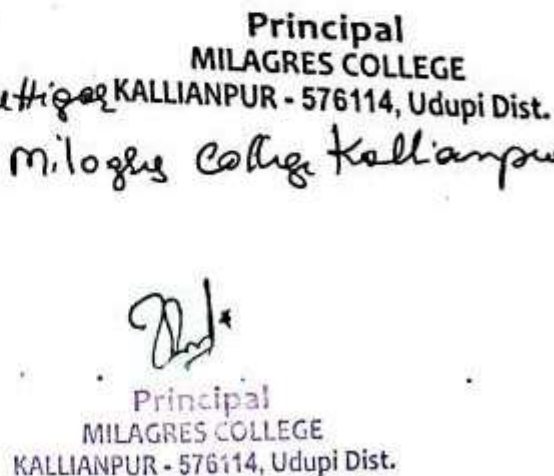 Principal
MILAGRES COLLEGE
KALLIANPUR - 576114, Udupi Dist.
Milagres College Kallianpu
Principal
MILAGRES COLLEGE
KALLIANPUR - 576114, Udupi Dist.